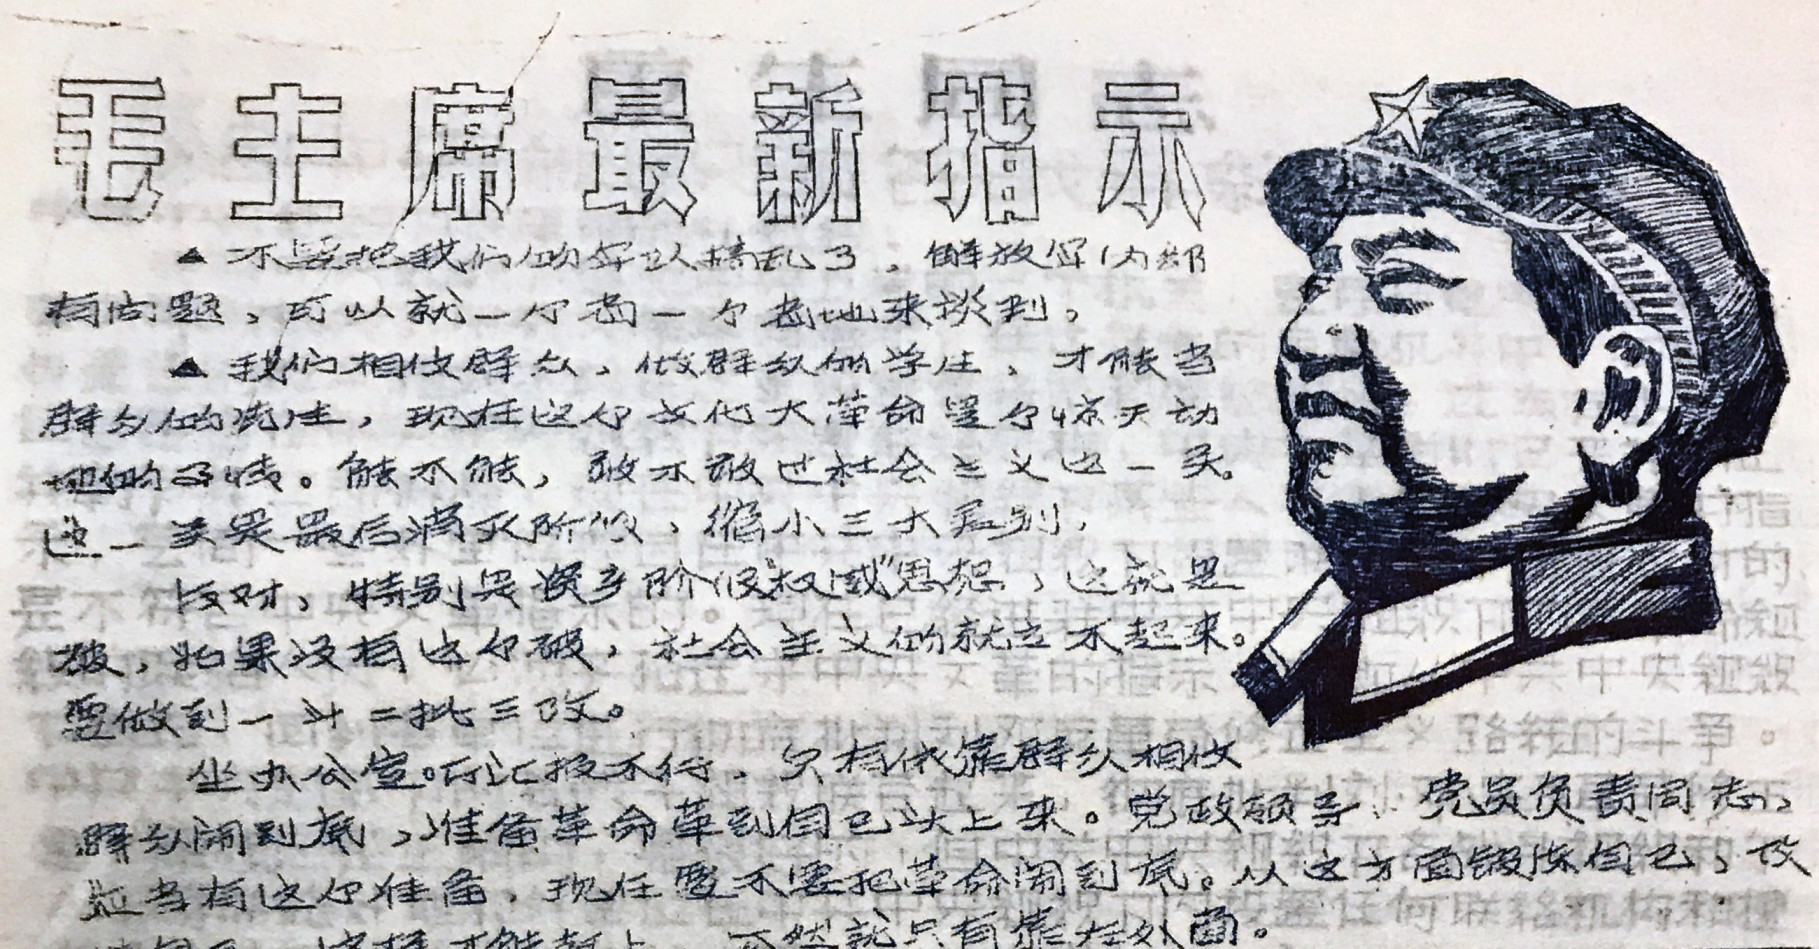 毛主席最新指示
▲不要把我们的军队搞乱了，解放军内部
有问题，可以就一个省一个省地来谈判。
▲我们相信群众，做群众的学生，才能当
群众的先生，现在这个文化大革命是个惊天动
地的事情。能不能，敢不敢过社会主义这一关。
这一关是最后消灭阶级，缩小三大差别，
反对，特别是资产阶级“权威”思想，这就是
破，如果没有这个破，社会主义的就立不起来。
要做到一斗二批三改。
坐办公室。听汇报不行，只有依靠群众相信
群众闹到底，准备革命革到自己头上来。党政领导、党员负责同志，
应当有这个准备，现在要不要把革命闹到底。从这方面锻炼自己，改
这样才能赶上，不然就只有靠在外面。